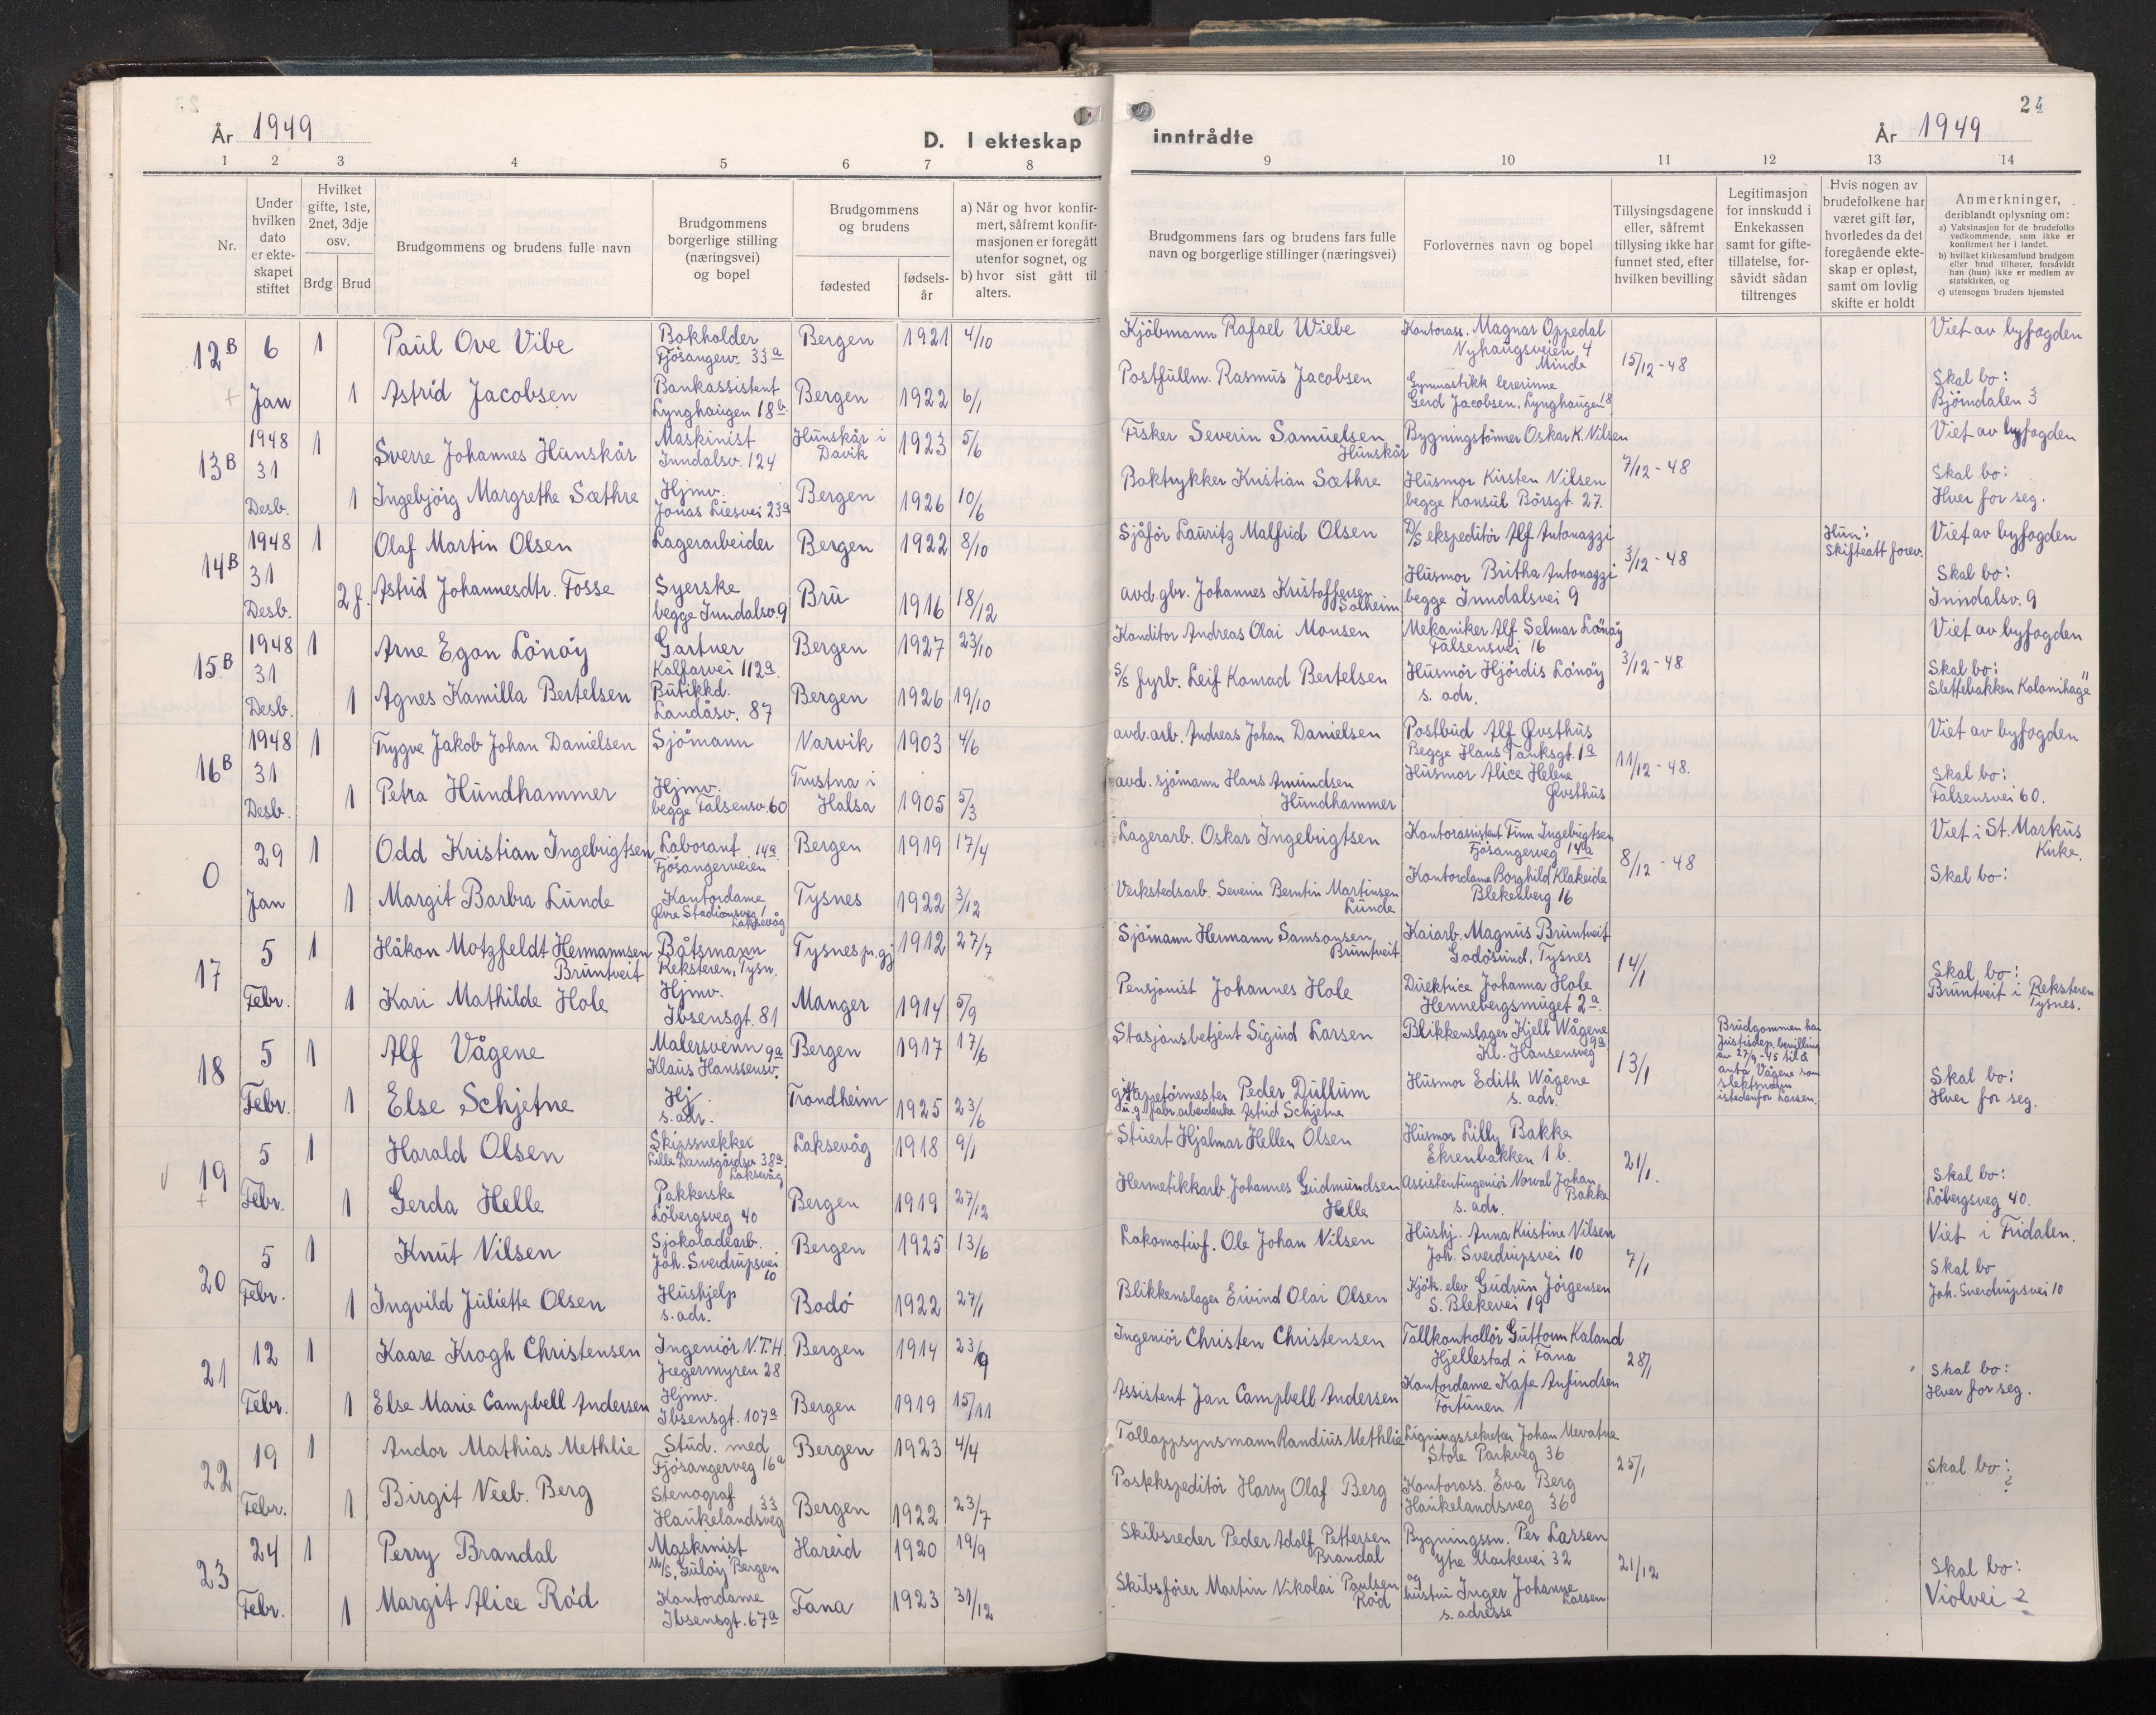 År 1949
D. I ekteskap
1 2 3 4 5 6 7 8
Nr.
Under hvilken dato er ekteskapet stiftet
Hvilket gifte, 1ste, 2net, 3dje osv.
Brdg. Brud
Brudgommens og brudens fulle navn
Brudgommens borgerlige stilling (næringsvei) og bopel
Brudgommens og brudens
fødested
fødselsår
a) Når og hvor konfirmert, såfremt konfirmasjonen er foregått utenfor sognet, og
b) hvor sist gått til alters.
12B 6 1 Paul Ove Vibe Bokholder Fjösangerv. 33a Bergen 1921 4/10
Jan 1 Astrid Jacobsen Bankassistent Lynghaugen 18b Bergen 1922 6/1
13B 1948 31 1 Sverre Johannes Hunskår Maskinist Inndalsv. 124 Hunskår i Davik 1923 5/6
Desb. 1 Ingebjörg Margrethe Sæthre Hjmv. Jonas Liesvei 23a Bergen 1926 10/6
14B 1948 31 1 Olaf Martin Olsen Lagerarbeider Bergen 1922 8/10
Desb. 2 f. Astrid Johannesdtr. Fosse Syerske begge Inndalsv. 9 Bru 1916 18/12
15B 1948 31 1 Arne Egon Lönöy Gartner Kalfarvei 112a. Bergen 1927 23/10
Desb. 1 Agnes Kamilla Bertelsen Butikkd. Landåsv. 87 Bergen 1926 19/10
16B 1948 31 1 Trygve Jakob Johan Danielsen Sjömann Narvik 1903 4/6
Desb. 1 Petra Hundhammer Hjmv. begge Falsensv. 60 Trustna i Halsa 1905 5/3
0 29 1 Odd Kristian Ingebrigtsen Laborant Fjösangerveien 14a Bergen 1919 17/4
Jan 1 Margit Barbra Lunde Kontordame Øvre Stadionsveg 1 Laksevåg Tysnes 1922 3/12
17 5 1 Håkon Motzfeldt Hermannsen Bruntveit Båtsmann Reksteren, Tysn. Tysnes pr.gj 1912 27/7
Febr. 1 Kari Mathilde Hole Hjmv. Ibsensgt. 81 Manger 1914 5/9
18 5 1 Alf Vågene Malersvenn Klaus Hanssensv. 9a Bergen 1917 17/6
Febr. 1 Else Schjetne Hj. s. adr. Trondheim 1925 23/6
19 5 1 Harald Olsen Skipssnekker Lille Damsgårdsv. 38a. Laksevåg Laksevåg 1918 9/1
Febr. 1 Gerda Helle Pakkerske Löbergsveg 40 Bergen 1919 27/12
20 5 1 Knut Nilsen Sjokoladearb. Joh. Sverdrupsvei 10 Bergen 1925 13/6
Febr. 1 Ingvild Juliette Olsen Hushjelp s. adr. Bodö 1922 27/1
21 12 1 Kaare Krogh Christensen Ingeniör N.T.H. Jægermyren 28 Bergen 1914 23/9
Febr. 1 Else Marie Campbell Andersen Hjmv. Ibsensgt. 107a Bergen 1919 15/11
22 19 1 Andor Mathias Methlie Stud. med Fjösangerveg 16a Bergen 1923 4/4
Febr. 1 Birgit Berg Stenograf Haukelandsveg 33 Bergen 1922 23/7
23 24 1 Perry Brandal Maskinist M/S. Guløy Bergen Hareid 1920 19/9
Febr. 1 Margit Alice Röd Kontordame Ibsensgt. 67a Fana 1923 31/12
24
inntrådte
År 1949
9 10 11 12 13 14
Brudgommens fars og brudens fars fulle navn og borgerlige stillinger (næringsvei)
Forlovernes navn og bopel
Tillysingsdagene eller, såfremt tillysing ikke har funnet sted, efter hvilken bevilling
Legitimasjon for innskudd i Enkekassen samt for giftetillatelse, forsåvidt sådan tiltrenges
Hvis nogen av brudefolkene har været gift før, hvorledes da det foregående ekteskap er opløst, samt om lovlig skifte er holdt
Anmerkninger, deriblandt oplysning om:
a) Vaksinasjon for de brudefolks vedkommende, som ikke er konfirmert her i landet.
b) hvilket kirkesamfund brudgom eller brud tilhører, forsåvidt han (hun) ikke er medlem av statskirken, og
c) utensogns bruders hjemsted
Kjöbmann Rafael Wiebe Kontorass. Magnar Oppedal Nyhaugsveien 4 Minde 15/12-48 Viet av byfogden
Postfullm. Rasmus Jacobsen Gymnastikk lærerinne Gerd Jacobsen, Lynghaugen 18 Skal bo: Björndalen 3
Fisker Severin Samuelsen Hunskår Bygningstömrer Oskar K. Nilsen 7/12-48 Viet av byfogden
Boktrykker Kristian Sæthre Husmor Kirsten Nilsen begge Konsul Börsgt. 27. Skal bo: Hver for seg.
Sjåför Lauritz Malfrid Olsen D/S ekspeditör Alf Antonazzi 3/12-48 Hun: Skifteatt forev. Viet av byfogden
avd. gbr. Johannes Kristoffersen Solheim Husmor Britha Antonazzi begge Inndalsvei 9 Skal bo: Inndalsv. 9
Konditor Andreas Olai Monsen Mekaniker Alf Selmar Lönöy Falsensvei 16 3/12-48 Viet av byfogden
S/S fyrb. Leif Konrad Bertelsen Husmor Hjördis Lönöy s. adr. Skal bo: Slettebakken Kolonihage"
avd. arb. Andreas Johan Danielsen Postbud Alf Øvsthus Begge Hans Tanksgt. 1a 11/12-48. Viet av byfogden
avd. sjömann Hans Amundsen Hundhammer Husmor Alice Helene Øvsthus Skal bo: Falsensvei 60.
Lagerarb. Oskar Ingebrigtsen Kontorassistent Finn Ingebrigtsen Fjösangerveg 14a 8/12-48 Viet i St. Markus Kirke.
Verkstedsarb. Severin Berntin Martinsen Lunde Kontordame Borghild Klakeide Blekenberg 16 Skal bo:
Sjömann Hermann Samsonsen Bruntveit Kaiarb. Magnus Bruntveit Godösund, Tysnes 14/1
Pensjonist Johannes Hole Direktrice Johanna Hole Hennebergsmuget 2a. Skal bo: Bruntveit i Reksteren Tysnes.
Stasjonsbetjent Sigurd Larsen Blikkenslager Kjell Wågene Kl. Hansensveg 9a 13/1 Brudgommen har Justisdep. bevilling av 27/9-45 til å anta Vågene som slektsnavn istedenfor Larsen.
gift Peder Dullum u.g. fabr.arbeiderske Astrid Schjetne Husmor Edith Wågene s. adr. Skal bo: Hver for seg.
Stuert Hjalmar Hellen Olsen Husmor Lilly Bakke Ekrenbakken 1 b. 21/1.
Hermetikkarb. Johannes Gudmundsen Helle Assistentingeniör Norval Johan Bakke s. adr. Skal bo: Löbergsveg 40.
Lokomotivf. Ole Johan Nilsen Hushj. Anna Kristine Nilsen Joh. Sverdrupsvei 10 7/1 Viet i Fridalen.
Blikkenslager Eivind Olai Olsen Kjök. elev Gudrun Jörgensen S. Blekevei 19 Skal bo Joh. Sverdrupsvei 10
Ingeniör Christen Christensen Tollkontrollör Guttorm Kaland Hjellestad i Fana 28/1
Assistent Jan Campbell Andersen Kontordame Kate Anfindsen Fortunen 1 Skal bo: Hver for seg.
Tollopsynsmann Randius Methlie Ligningssekretær Johan Mevatne Store Parkveg 36 25/1
Postekspeditör Harry Olaf Berg Kontorass. Eva Berg Haukelandsveg 36 Skal bo: ?
Skibsreder Peder Adolf Pettersen Brandal Bygningssn. Per Larsen Ytre Markevei 32 21/12
Skibsförer Martin Nikolai Paulsen Röd og hustru Inger Johanne Larsen s. adresse Skal bo: Violvei 2